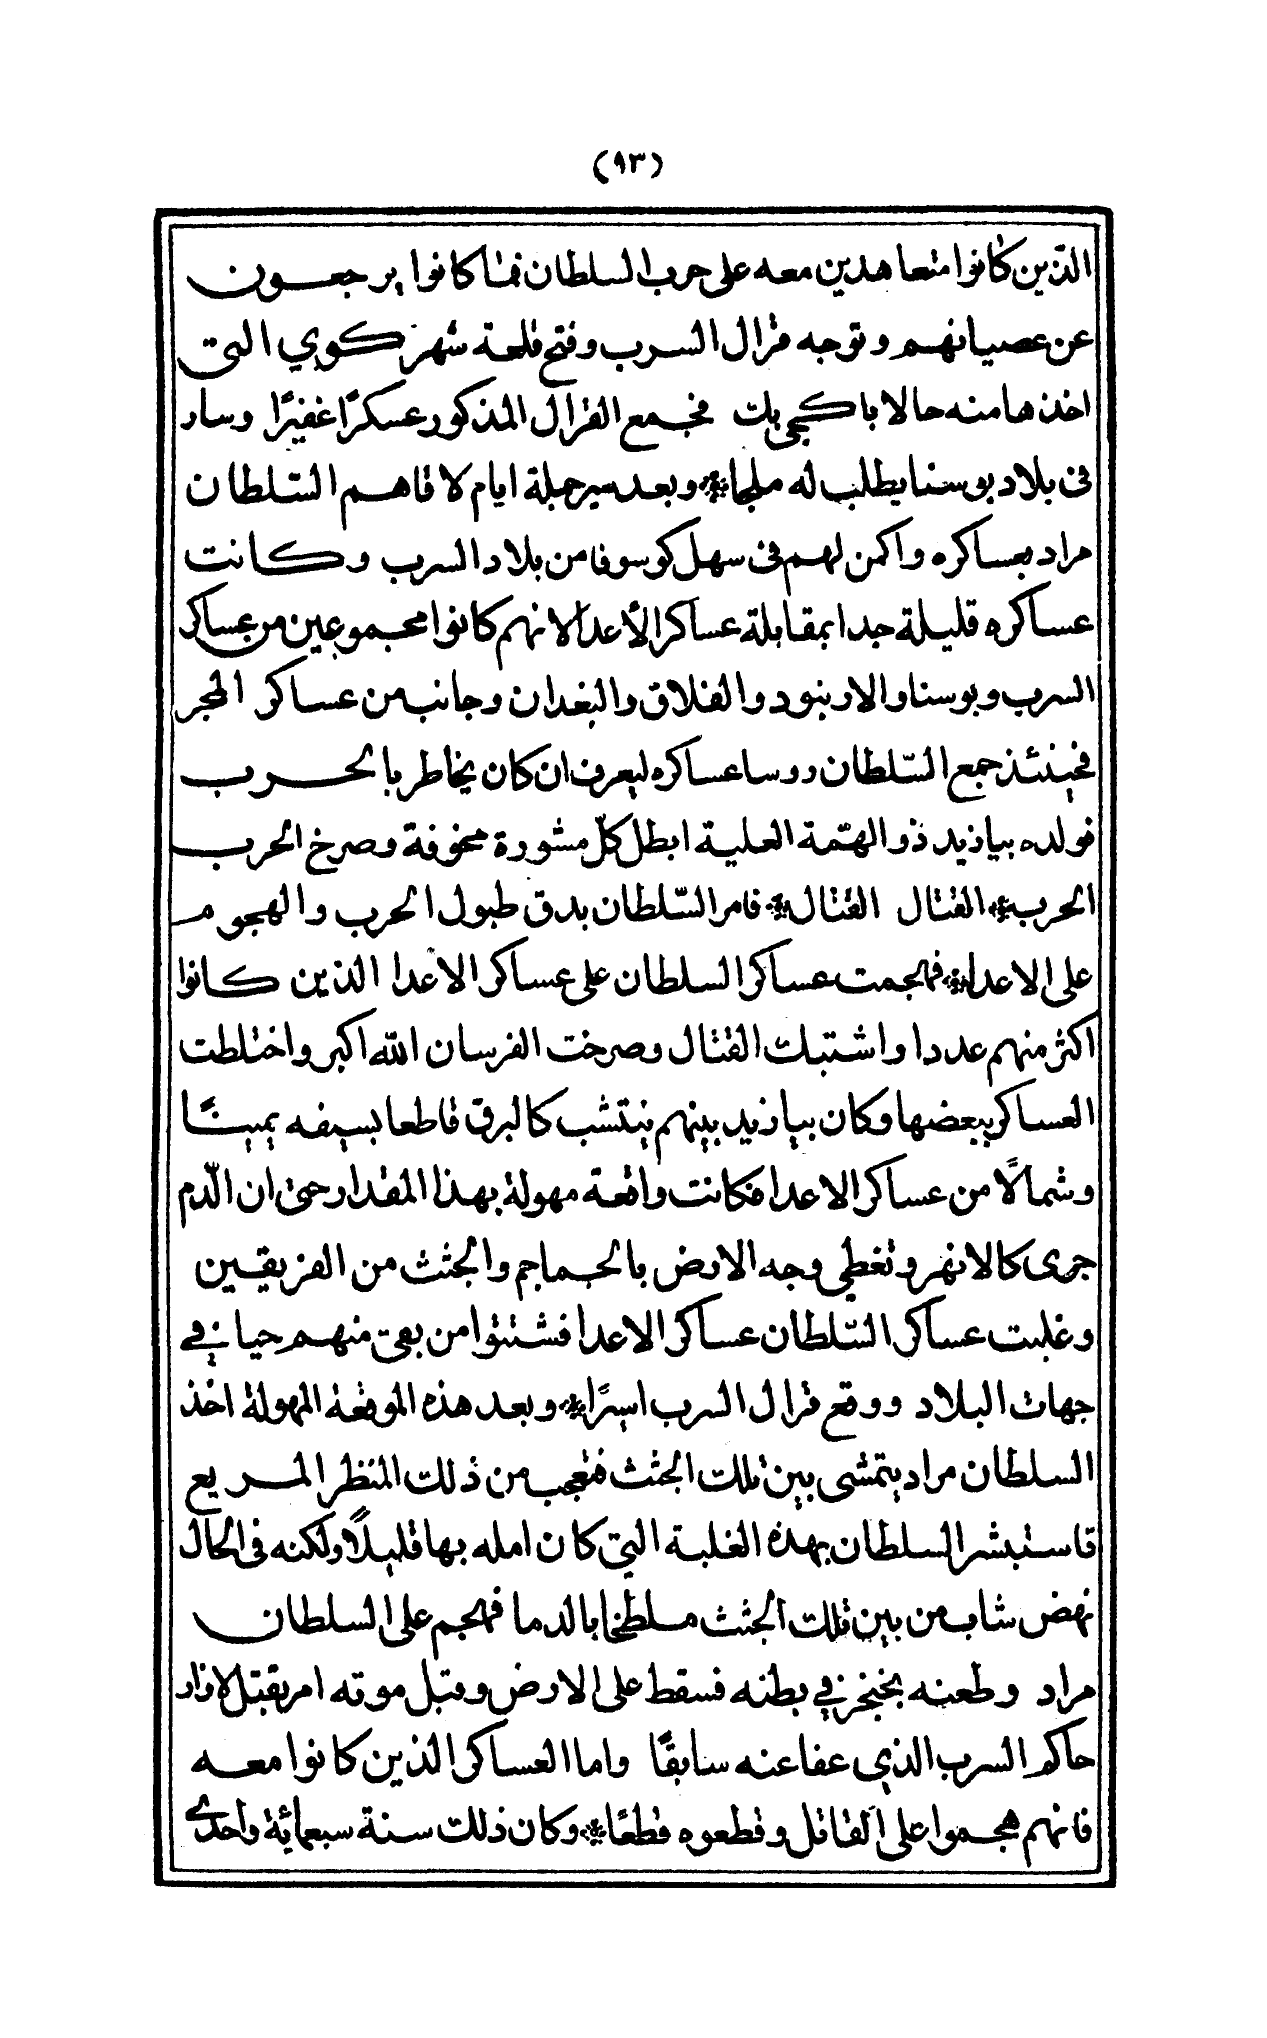 (٩٣)
الذين كانوا متعاهدين معه على حرب السلطان فما كانوا يرجعون
عن عصيانهم وتوجه قرال السرب وفتح قلعة شهركوي التى
اخذها منه حالا باكجى بك فجمع القرال المذكور عسكرًا غفيرًا وسار
فى بلاد بوسنا يطلب له ملجا وبعد سير جملة ايام لاقاهم السّلطان
مراد بعساكره واكمن لهم فى سهل كوسوفا من بلاد السرب وكانت
عساكره قليلة جدا بمقابلة عساكر الأعدا لانهم كانوا مجموعين من عساكر
السرب وبوسنا والارنبود والفلاق والبغدان وجانب من عساكر الهجر
فحينئذ جمع السّلطان روسا عساكره ليعرف ان كان يخاطر بالحرب
فولده بيازيد ذو الهتمة العلية ابطل كلّ مشورة مخوفة وصرخ الحرب
الحرب القتال القتال فامر السّلطان بدق طبول الحرب والهجوم
على الاعدا فهجمت عساكر السلطان على عساكر الاعدا الذين كانوا
اكثر منهم عددا واشتبك القتال وصرخت الفرسان الله اكبر واختلطت
العساكر ببعضها وكان بيازيد بينهم ينتشب كالبرق قاطعا بسيفه يمينًا
وشمالًا من عساكر الاعدا فكانت واقعة مهولة بهذا المقدار حتى ان الدّم
جرى كالانهر وتغطى وجه الارض بالجماجم والجثث من الفريقين
وغلبت عساكر السّلطان عساكر الاعدا فشتتوا من بقى منهم حيا في
جهات البلاد ووقع قرال السرب اسيرًا وبعد هذه الموقعة المهولة اخذ
السلطان مراد يتمشى بين تلك الجثث فتعجب من ذلك المنظر المريع
فاستبشر السلطان بهذه الغلبة التى كان امله بها قليلًا ولكنه فى الحال
نهض شاب من بين تلك الجثث ملطخا بالدما فهجم على السلطان
مراد وطعنه بخنجر في بطنه فسقط على الارض وقبل موته امر بقتل لازار
حاكم السرب الذي عفا عنه سابقًا واما العساكر الذين كانوا معه
فانهم هجموا على القاتل وقطعوه قطعًا وكان ذلك سنة سبعمائة واحدى